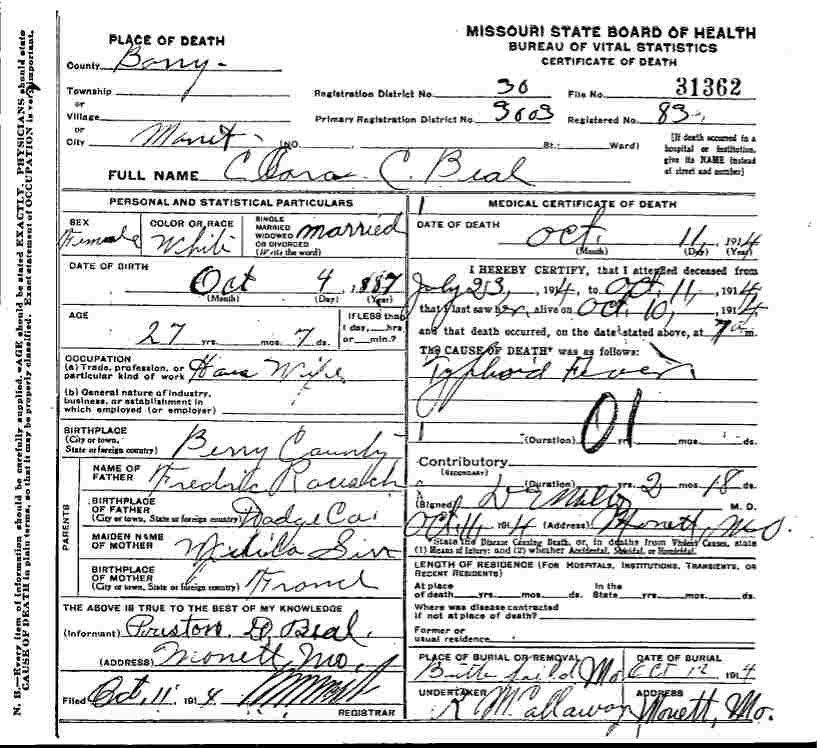 MISSOURI STATE BOARD OF HEALTH
BUREAU OF VITAL STATISTICS
CERTIFICATE OF DEATH
PLACE OF DEATH
County Barry
Township
or
Village
or
City Monett (NO. St.; Ward)
Registration District No. 30 File No. 31362
Primary Registration District No. 3003 Registered No. 83
[If death occurred in a
hospital or institution,
give its NAME instead
of street and number]
FULL NAME Clara C. Beal
PERSONAL AND STATISTICAL PARTICULARS
SEX Female
COLOR OR RACE White
SINGLE
MARRIED
WIDOWED
OR DIVORCED
(Write the word) married
DATE OF BIRTH
Oct 4, 1887
(Month) (Day) (Year)
AGE
27 yrs. mos. 7 ds.
If LESS than
1 day, hrs.
or min.?
OCCUPATION
(a) Trade, profession, or
particular kind of work House Wife
(b) General nature of industry,
business, or establishment in
which employed (or employer)
BIRTHPLACE
(City or town,
State or foreign country) Berry County
PARENTS
NAME OF
FATHER Fredric Rausch
BIRTHPLACE
OF FATHER
(City or town, State or foreign country) Dodge Co.
MAIDEN NAME
OF MOTHER
BIRTHPLACE
OF MOTHER
(City or town, State or foreign country)
THE ABOVE IS TRUE TO THE BEST OF MY KNOWLEDGE
(Informant) Preston D. Beal.
(ADDRESS) Monett, Mo.
Filed Oct, 11 1914
REGISTRAR
MEDICAL CERTIFICATE OF DEATH
DATE OF DEATH
Oct. 11, 1914
(Month) (Day) (Year)
I HEREBY CERTIFY, that I attended deceased from
July 23, 1914, to Oct. 11, 1914
that I last saw her alive on Oct. 10, 1914
and that death occurred, on the date stated above, at 7 a m.
THE CAUSE OF DEATH* was as follows:
Typhoid Fever
01
(Duration) yrs. mos. ds.
Contributory
(SECONDARY)
(Duration) yrs. 2 mos. 18 ds.
(Signed) M. D.
Oct. 11, 1914 (Address) Monett, Mo.
*State the Disease Causing Death, or, in deaths from Violent Causes, state
(1) Means of Injury; and (2) whether Accidental, Suicidal, or Homicidal.
LENGTH OF RESIDENCE (FOR HOSPITALS, INSTITUTIONS, TRANSIENTS, OR
RECENT RESIDENTS)
At place
of death yrs. mos. ds. In the
State yrs. mos. ds.
Where was disease contracted
if not at place of death?
Former or
usual residence
PLACE OF BURIAL OR REMOVAL Butterfield Mo
DATE OF BURIAL Oct 12 1914
UNDERTAKER Callaway
ADDRESS Monett, Mo.
N. B.—Every item of information should be carefully supplied. AGE should be stated EXACTLY. PHYSICIANS should state
CAUSE OF DEATH in plain terms, so that it may be properly classified. Exact statement of OCCUPATION is very important.